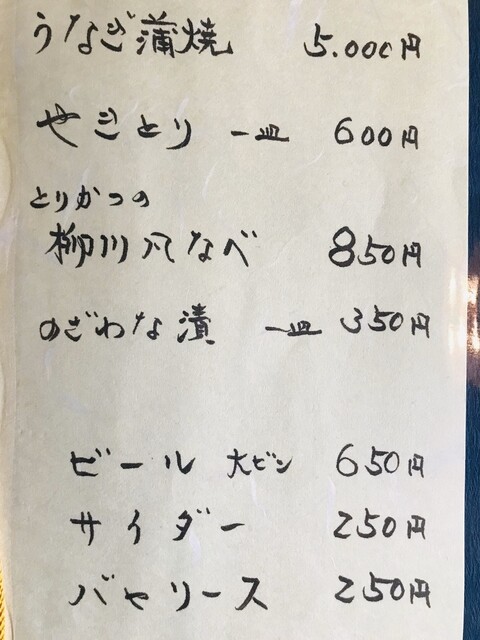 うなぎ蒲焼 5.000円
やきとり 一皿 600円
とりかつの
柳川風なべ 850円
のざわな漬 一皿 350円
ビール 大ビン 650円
サイダー 250円
バヤリース 250円